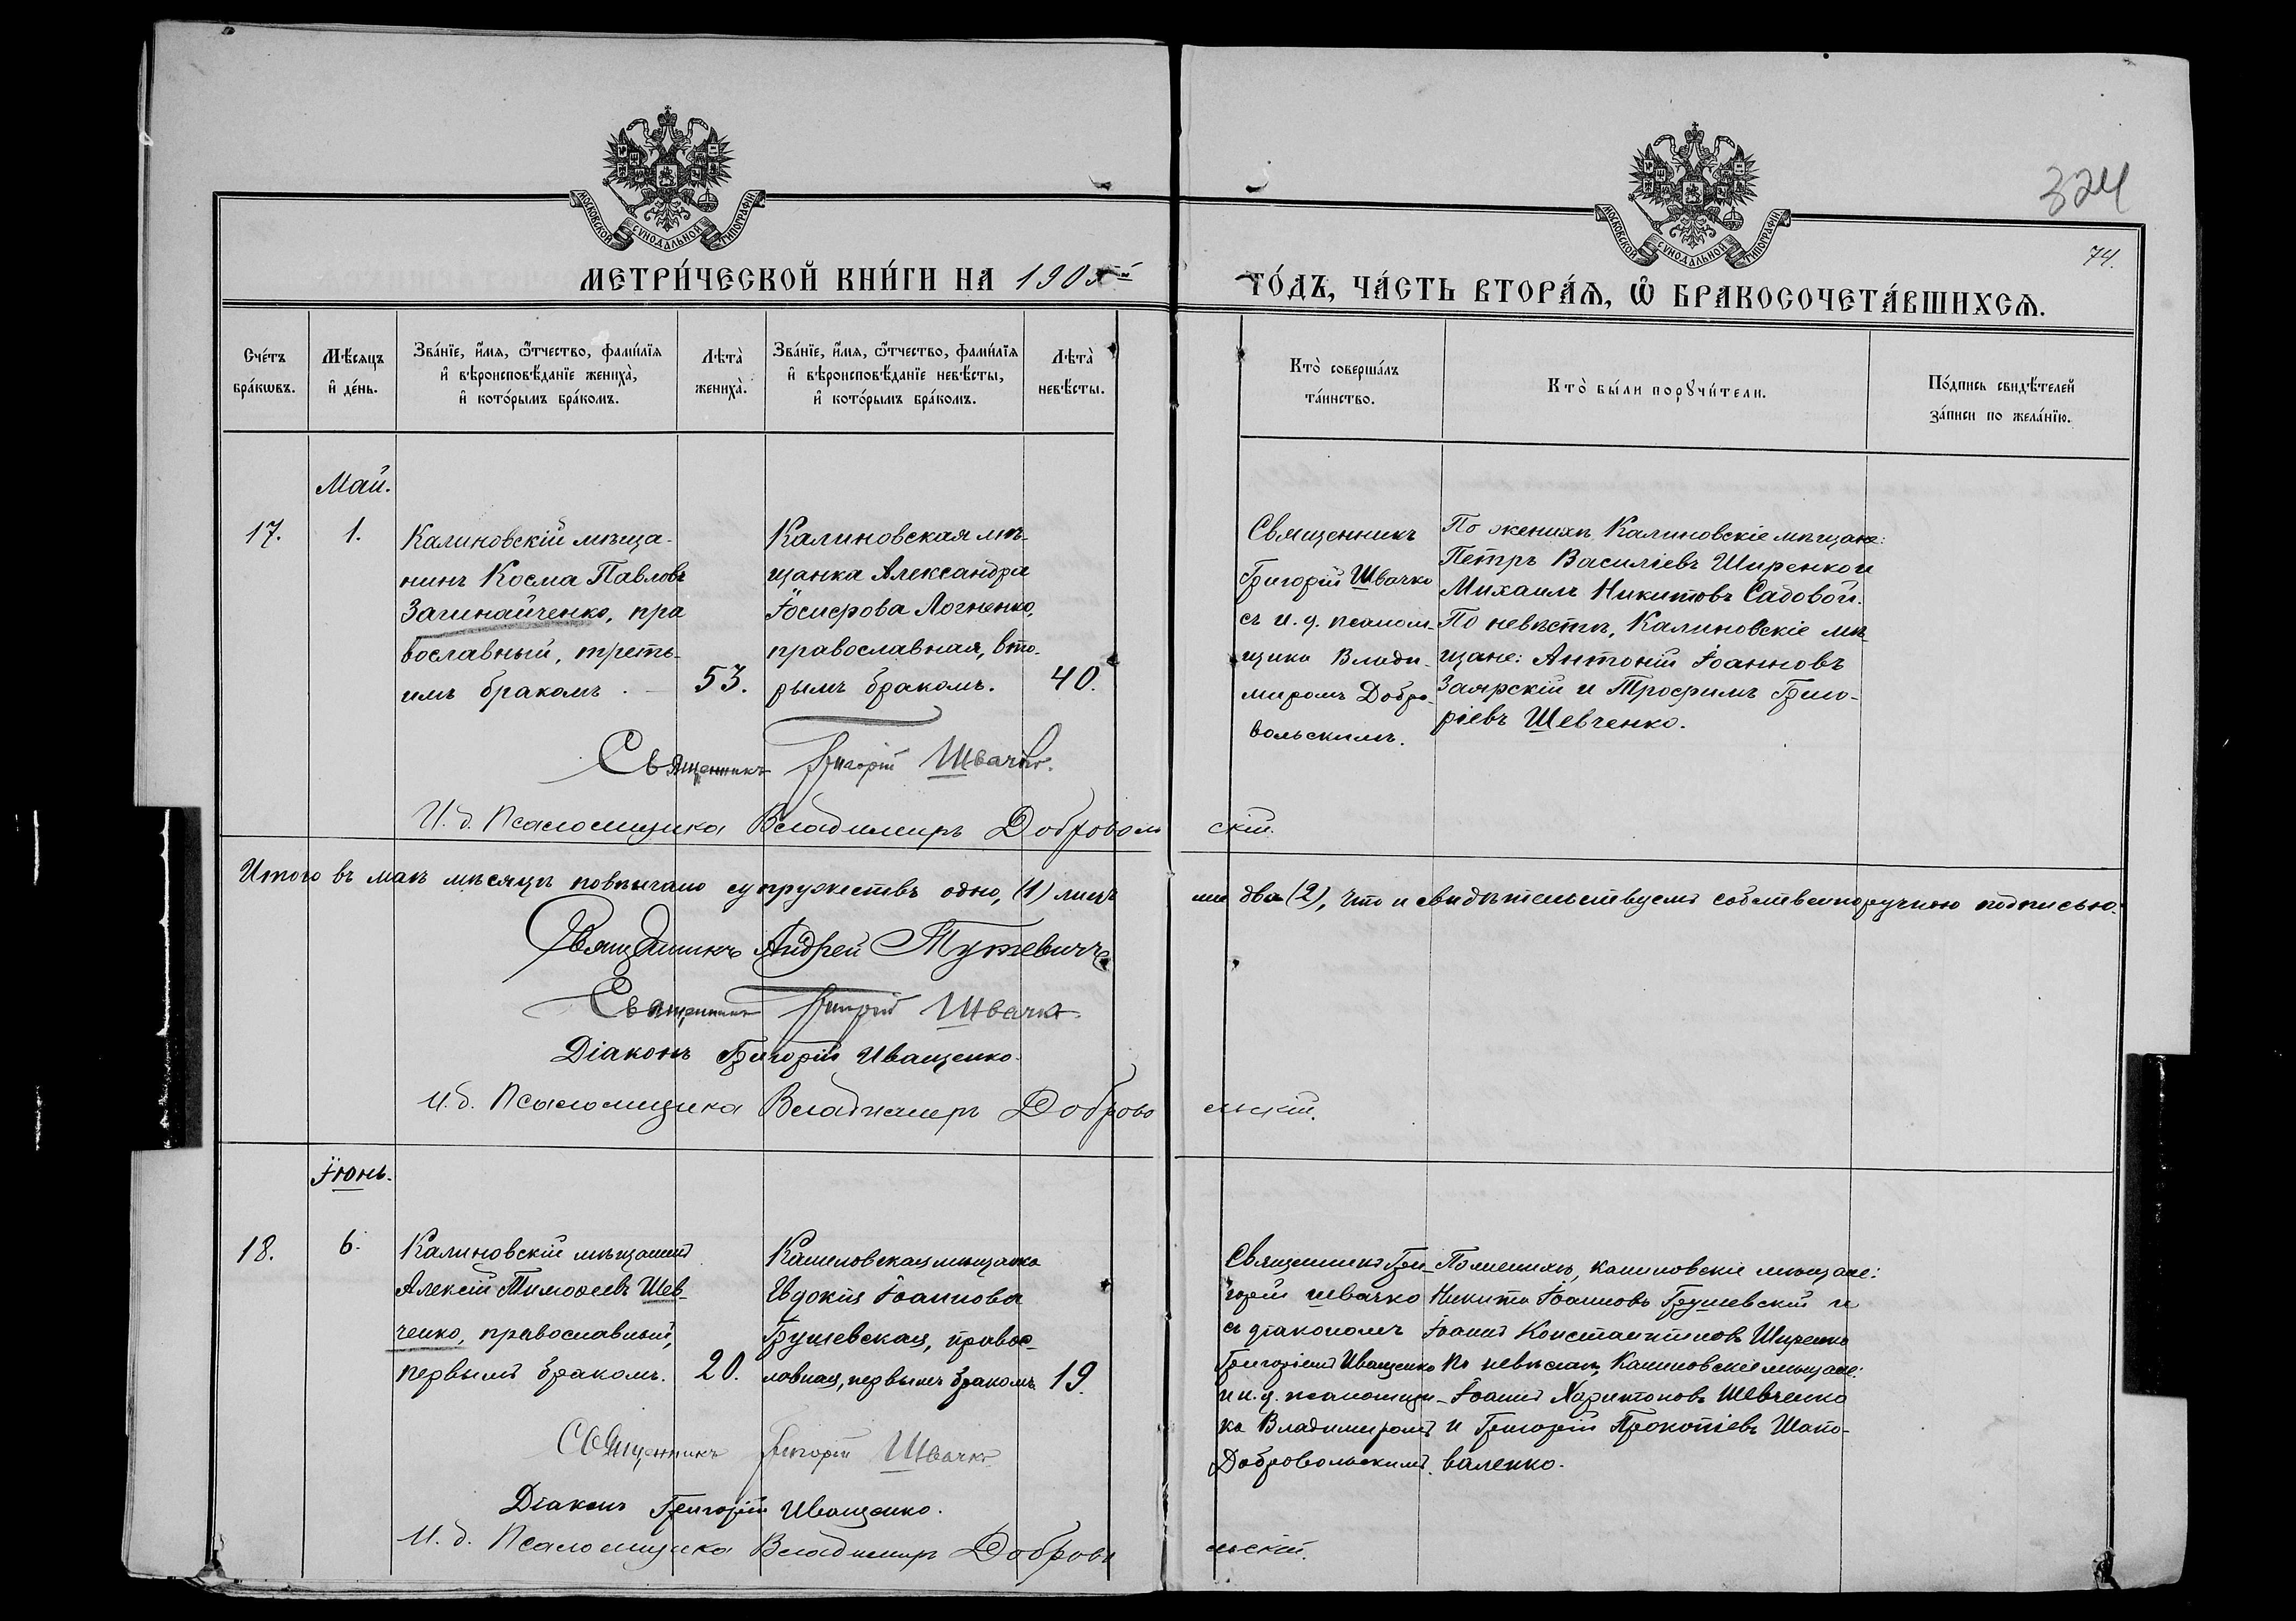 324
74.
МОСКОВСКОЙ СѴНОДАЛЬНОЙ ТИПОГРАФІИ
МОСКОВСКОЙ СѴНОДАЛЬНОЙ ТИПОГРАФІИ
МЕТРИ́ЧЕСКОЙ КНИ́ГИ НА 1905й
ГО́ДЪ, ЧА́СТЬ ВТОРА́Ѧ, Ѽ БРАКОСОЧЕТА́ВШИХСѦ.
Сче́тъ
бра́кѡвъ.
Мѣ́сяцъ
и҆ де́нь.
Зва́нїе, и҆́мѧ, ѻ҆́тчество, фами́лїѧ
и҆ вѣроисповѣ́данїе жениха̀,
и҆ кото́рымъ бра́комъ.
Лѣта̀
жениха̀.
Зва́нїе, и҆́мѧ, ѻ҆́тчество, фами́лїѧ
и҆ вѣроисповѣ́данїе невѣ́сты,
и҆ кото́рымъ бра́комъ.
Лѣта̀
невѣ́сты.
Кто̀ соверша́лъ
та́инство.
Кто̀ бы́ли порꙋчи́тели.
По́дпись свидѣ́телей
за́писи по жела́нїю.
Май.
17.
1.
Калиновскій мѣща-
нинъ Косма Павловъ
Загинайченко, пра
вославный, треть-
имъ бракомъ. —
53.
Калиновская мѣ-
щанка Александра
Іосифова Логненко,
православная, вто-
рымъ бракомъ.
40.
Священникъ
Григорій Швачко
съ и. д. псалом-
щика Влади-
миромъ Добро-
вольскимъ.
По женихѣ, Калиновскіе мѣщане:
Петръ Василіевъ Ширенко и
Михаилъ Никитовъ Садовой.
По невѣстѣ, Калиновскіе мѣ-
щане: Антоній Іоанновъ
Заярскій и Трофимъ Григо-
ріевъ Шевченко.
Священникъ Григорій Швачко.
И. д. Псаломщика Владимиръ Добровольскій.
Итого въ маѣ мѣсяцѣ повѣнчано супружествъ одно, (1) лицъ
ми два (2), что и свидѣтельствуемъ собственноручною подписью.
Священникъ Андрей Тутевичъ
Священникъ Григорій Швачко.
Діаконъ Григорій Иващенко.
И. д. Псаломщика Владимиръ Добровольскій.
Іюнь.
18.
6.
Калиновскій мѣщанинъ
Алексій Тимоѳеевъ Шев-
ченко, православный,
первымъ бракомъ.
20.
Калиновская мѣщанка
Евдокія Іоаннова
Грушевская, правос-
лавная, первымъ бракомъ.
19.
Священникъ Гри-
горій Швачко
съ діакономъ
Григоріемъ Иващенко
и и. д. псаломщи-
ка Владимиромъ
Добровольскимъ.
По женихѣ, калиновскіе мѣщане:
Никита Іоанновъ Грушевскій и
Іоаннъ Константиновъ Ширенко
По невѣстѣ, Калиновскіе мѣщане:
Іоаннъ Харитоновъ Шевченко
и Григорій Прокопіевъ Шапо-
валенко.
Священникъ Григорій Швачко
Діаконъ Григорій Иващенко.
И. д. Псаломщика Владимиръ Добровольскій.